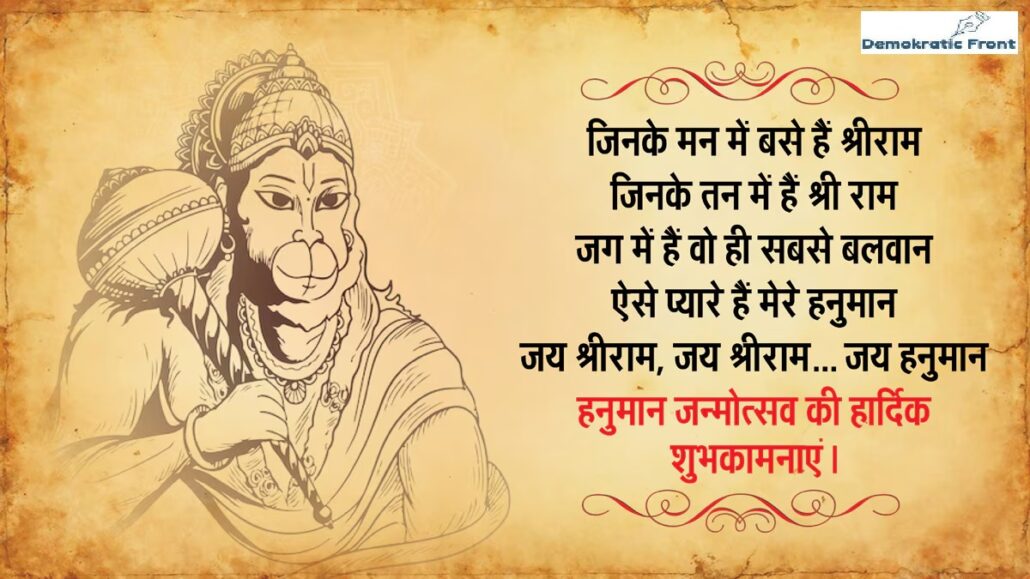 Demokratic Front
जिनके मन में बसे हैं श्रीराम
जिनके तन में हैं श्री राम
जग में हैं वो ही सबसे बलवान
ऐसे प्यारे हैं मेरे हनुमान
जय श्रीराम, जय श्रीराम... जय हनुमान
हनुमान जन्मोत्सव की हार्दिक
शुभकामनाएं।